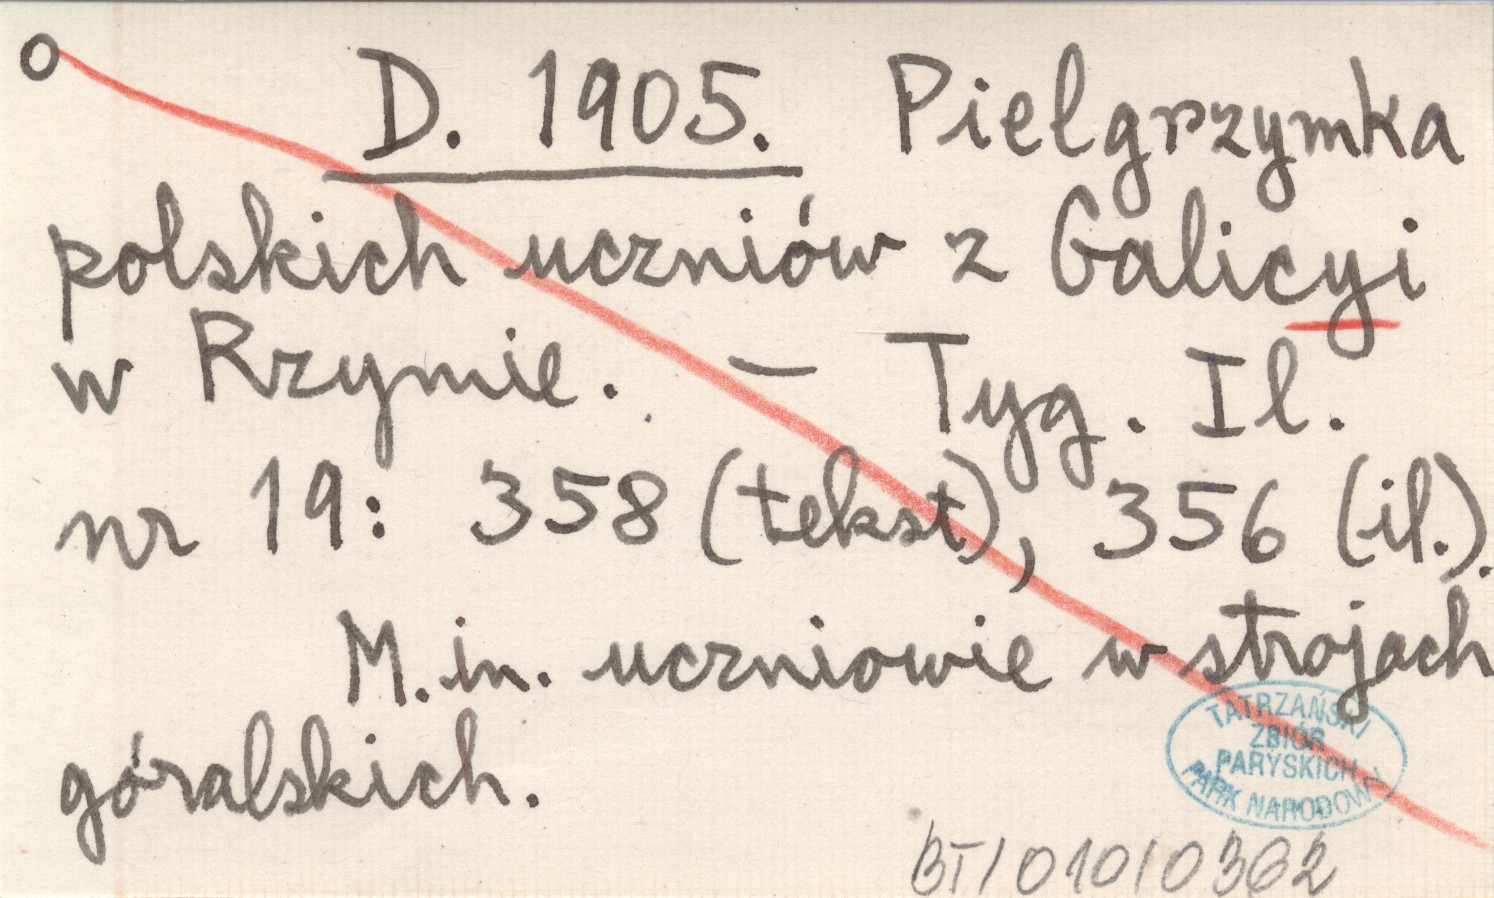 O D. 1905. Pielgrzymka
polskich uczniów z Galicyi
w Rzymie. – Tyg. Il.
nr 19: 358 (tekst), 356 (il.).
M.in. uczniowie w strojach
góralskich.
TATRZAŃSKI
ZBIÓR
PARYSKICH
PARK NARODOWY
BT/010/0362